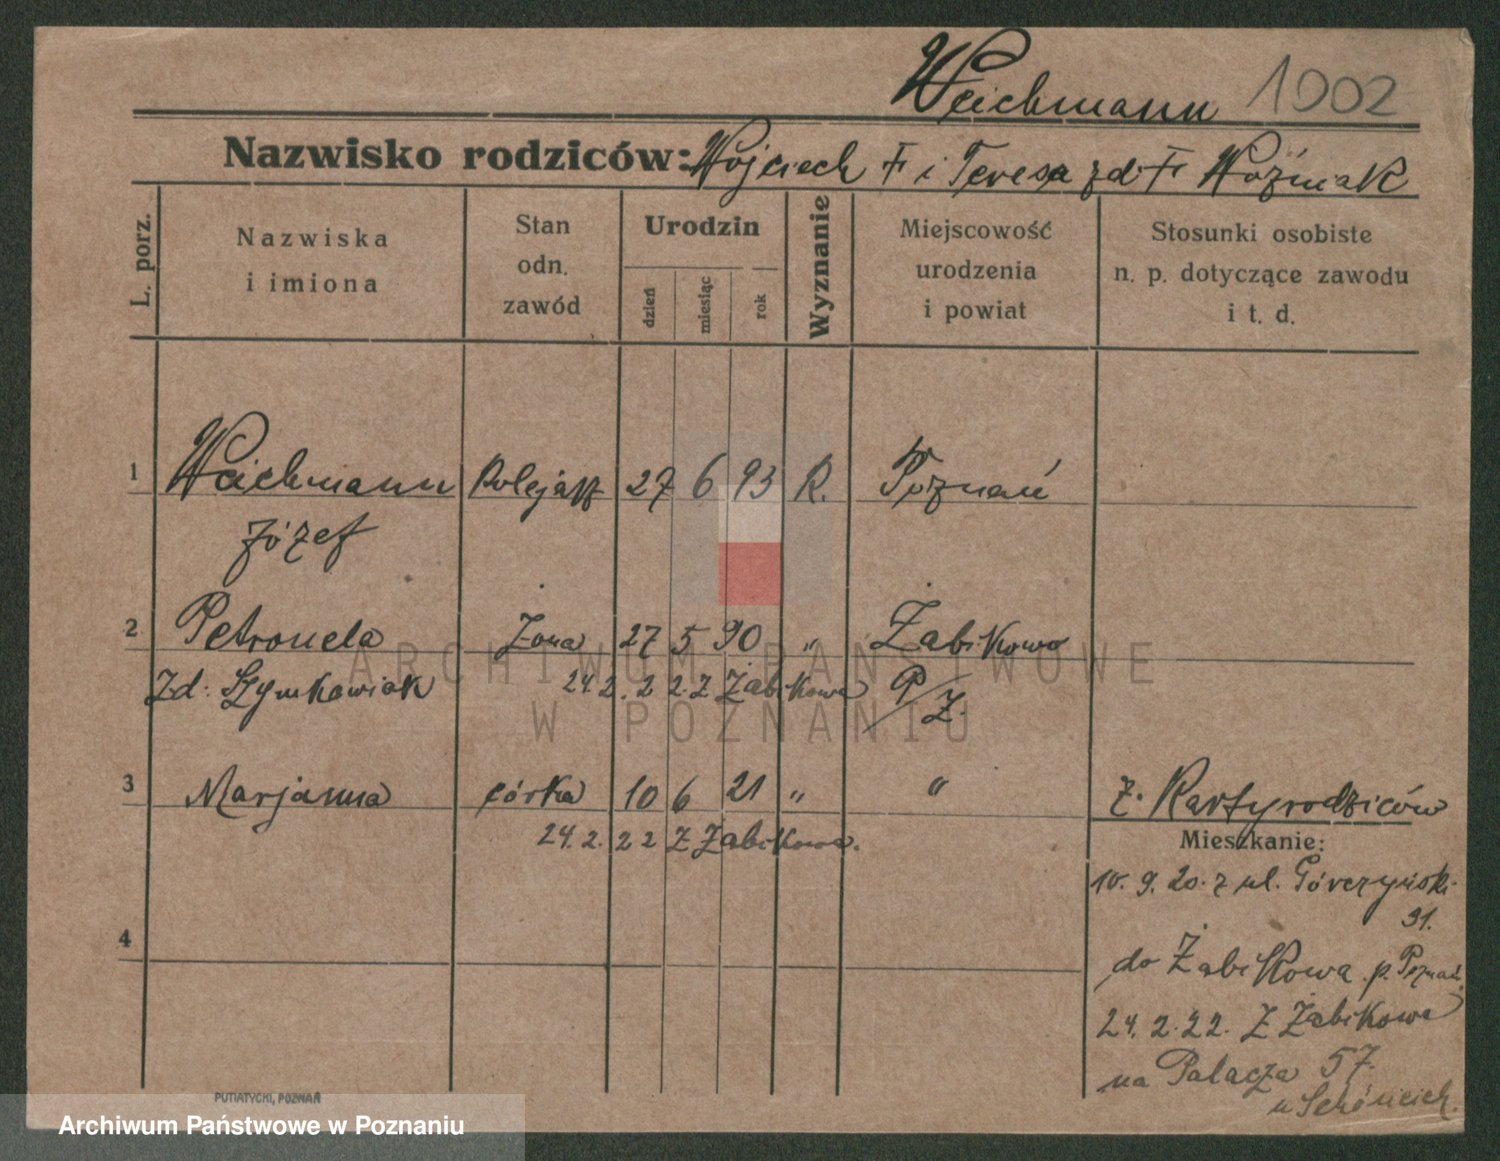 Weichmann 1902
Nazwisko rodziców: Wojciech F i Teresa zd: F Woźniak
L. porz.
Nazwiska
i imiona
Stan
odn.
zawód
Urodzin
dzień
miesiąc
rok
Wyznanie
Miejscowość
urodzenia
i powiat
Stosunki osobiste
n. p. dotyczące zawodu
i t. d.
1 Weichmann Kolejarz 27 6 93 R. Poznań
Józef
2 Petronela Żona 27 5 90 " Żabikowo
Zd: Szymkowiak 24.2.22. Z Żabikowa P/Z.
3 Marjanna córka 10 6 21 " " z. Karty rodziców
24.2.22 Z Żabikowa.
Mieszkanie:
10.9.20. z ul. Górczyński
31.
4
do Żabikowa p. Poznań
24.2.22. Z Żabikowa
na Palacza 57.
u
PUTIATYCKI, POZNAŃ
ARCHIWUM PAŃSTWOWE
W POZNANIU
Archiwum Państwowe w Poznaniu